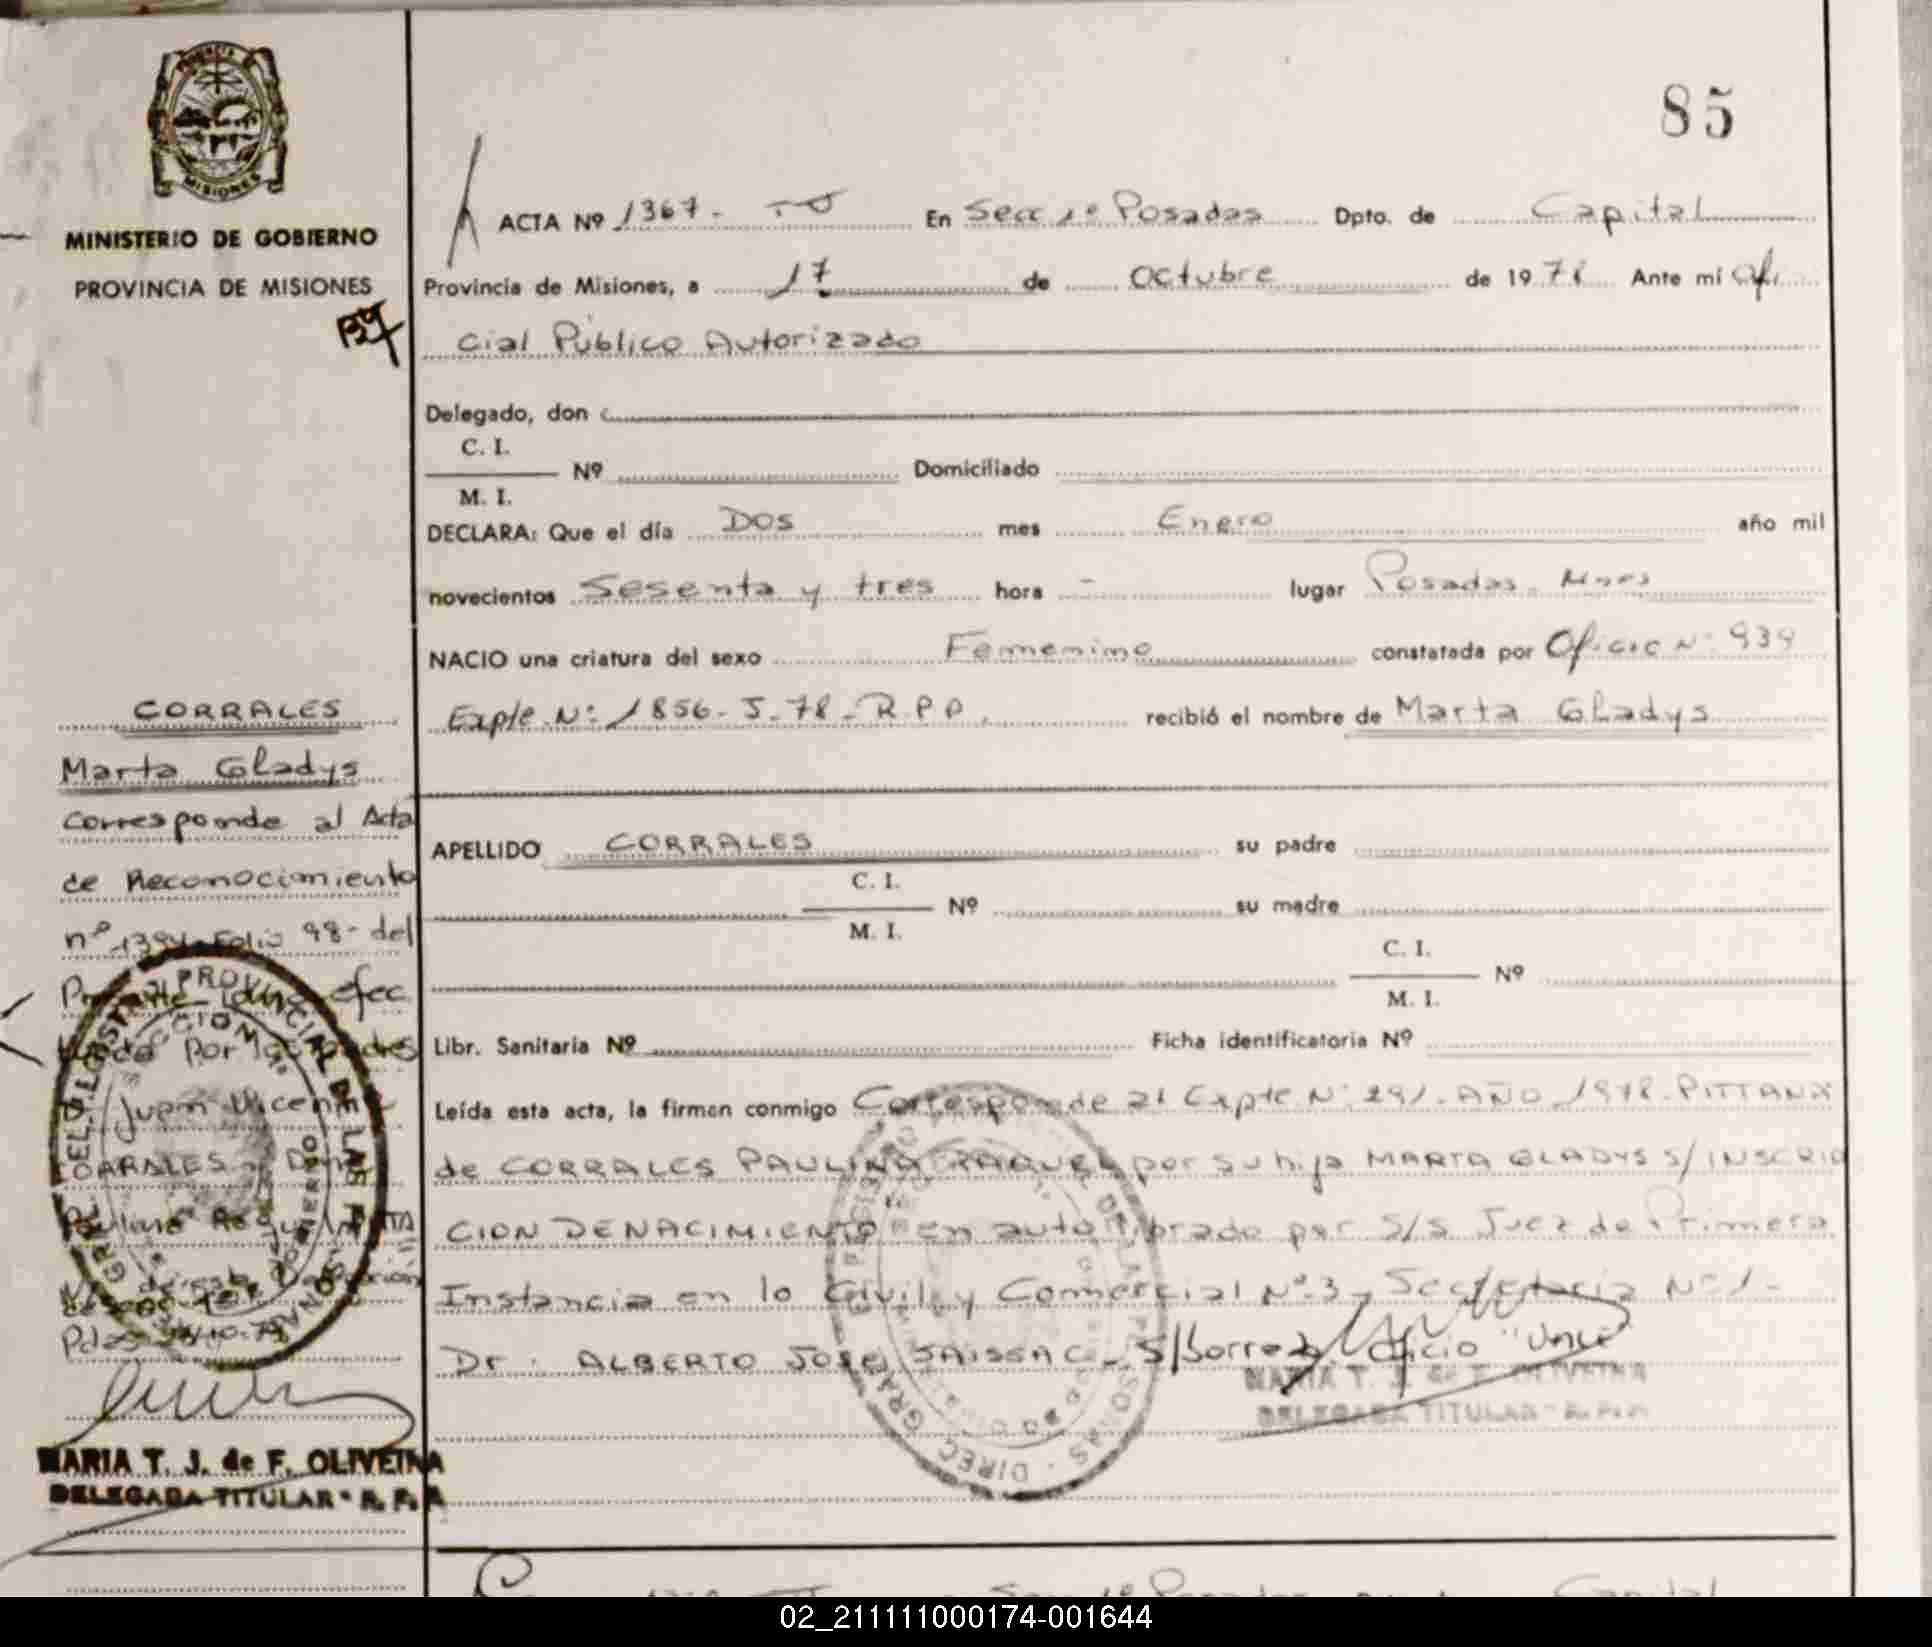 85
PROVINCIA DE
MISIONES
MINISTERIO DE GOBIERNO
PROVINCIA DE MISIONES
ACTA Nº 1367. En Secc 1º Posadas Dpto. de Capital
Provincia de Misiones, a 17 de Octubre de 1978 Ante mi Ofi
cial Público Autorizado
Delegado, don
C. I.
Nº Domiciliado
M. I.
DECLARA: Que el día Dos mes Enero año mil
novecientos Sesenta y tres hora - lugar Posadas. Mnes
NACIO una criatura del sexo Femenino constatada por Oficio Nº 939
Expte. Nº 1856-J-78-R.P.P. recibió el nombre de Marta Gladys
APELLIDO CORRALES su padre
C. I.
Nº su madre
M. I.
C. I.
Nº
M. I.
Libr. Sanitaria Nº Ficha identificatoria Nº
Leída esta acta, la firman conmigo Corresponde al Expte Nº 291. AÑO 1978. PITTANA
de CORRALES PAULINA RAQUEL por su hija MARTA GLADYS S/ INSCRIP
CION DE NACIMIENTO en auto librado por S/S Juez de Primera
Instancia en lo Civil y Comercial Nº 3 - Secretaria Nº 1 -
Dr. ALBERTO JOSE JAISSAC - S/Borrado. Oficio "Vale"
MARIA T. J. de F. OLIVEIRA
DELEGADA TITULAR - R. P. P.
CORRALES
Marta Gladys
Corresponde al Acta
de Reconocimiento
nº 1394 Folio 98 - del
Presente efec
tuada por los padres
Juan Vicente
CORRALES y
Paulina Raquel
MARIA T. J. de F. OLIVEIRA
DELEGADA TITULAR - R. P. P.
Posadas Capital
02_211111000174-001644